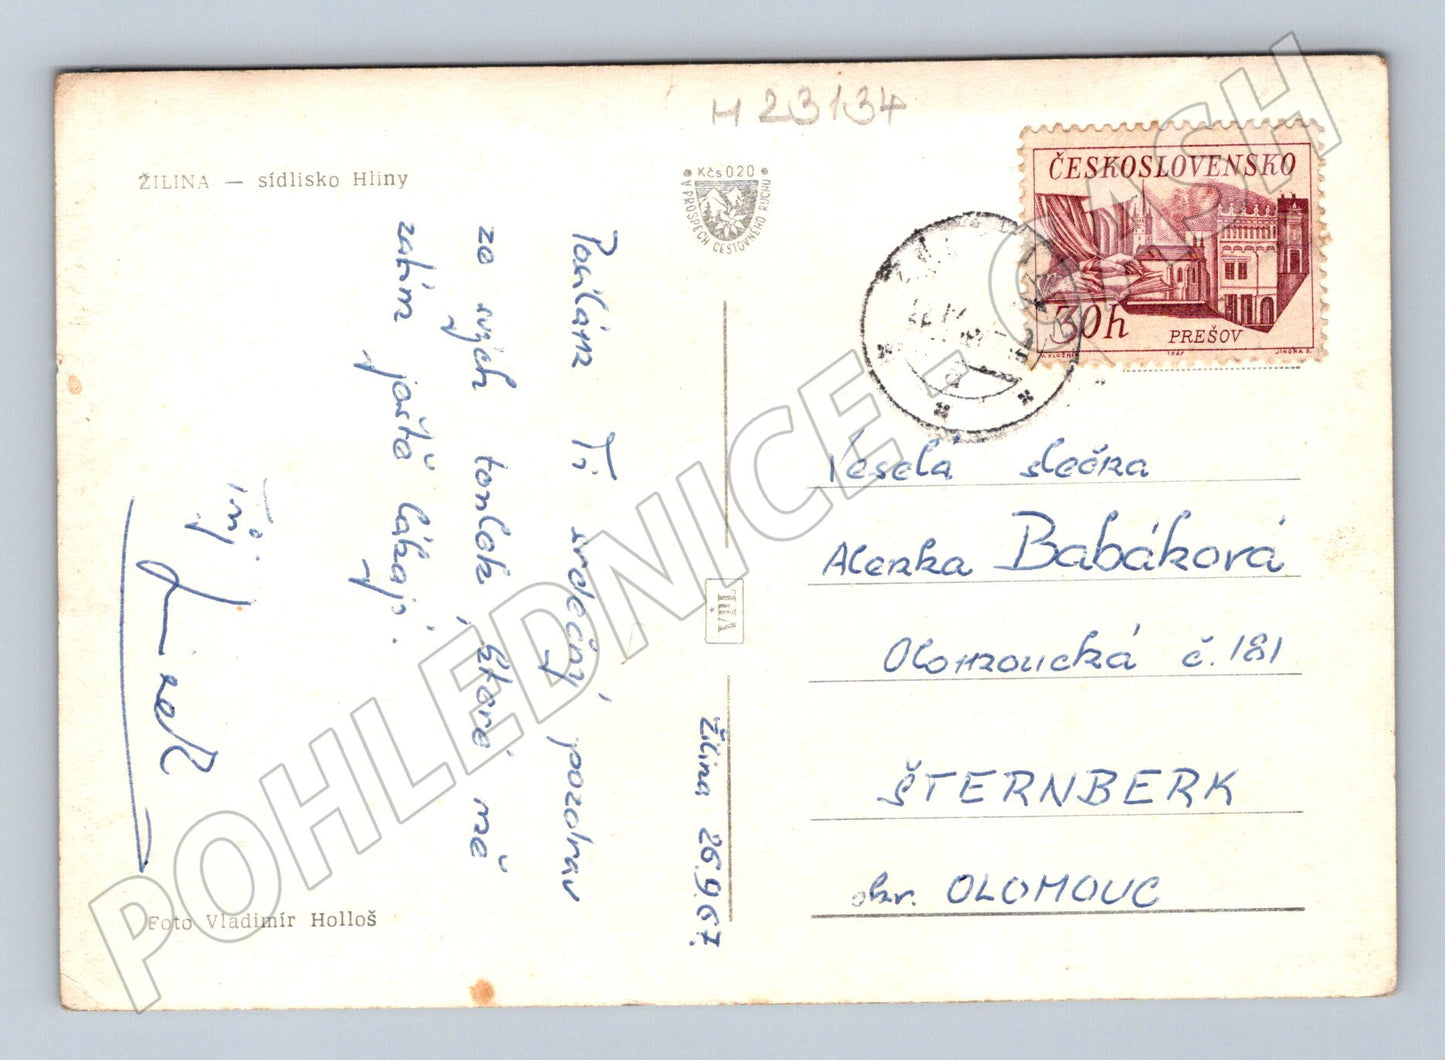 H 23134
ŽILINA — sídlisko Hliny
Kčs 020
V PROSPECH CESTOVNÉHO RUCHU
ČESKOSLOVENSKO
30h
PREŠOV
1967
JINDRA S.
Posílám Ti srdečný pozdrav
ze svých toulek, které mě
zatím ještě lákají.
Tvůj
Žilina 26.9.67.
TUĽA
Veselá slečna
Alenka Babáková
Olomoucká č. 181
ŠTERNBERK
okr. OLOMOUC
Foto Vladimír Holloš
POHLEDNICE - CASH